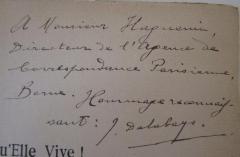 A Monsieur Haguenin,
Directeur de l'Agence de
Correspondance Parisienne,
Berne. Hommage reconnais-
sant: J. Delebays.
u'Elle Vive !